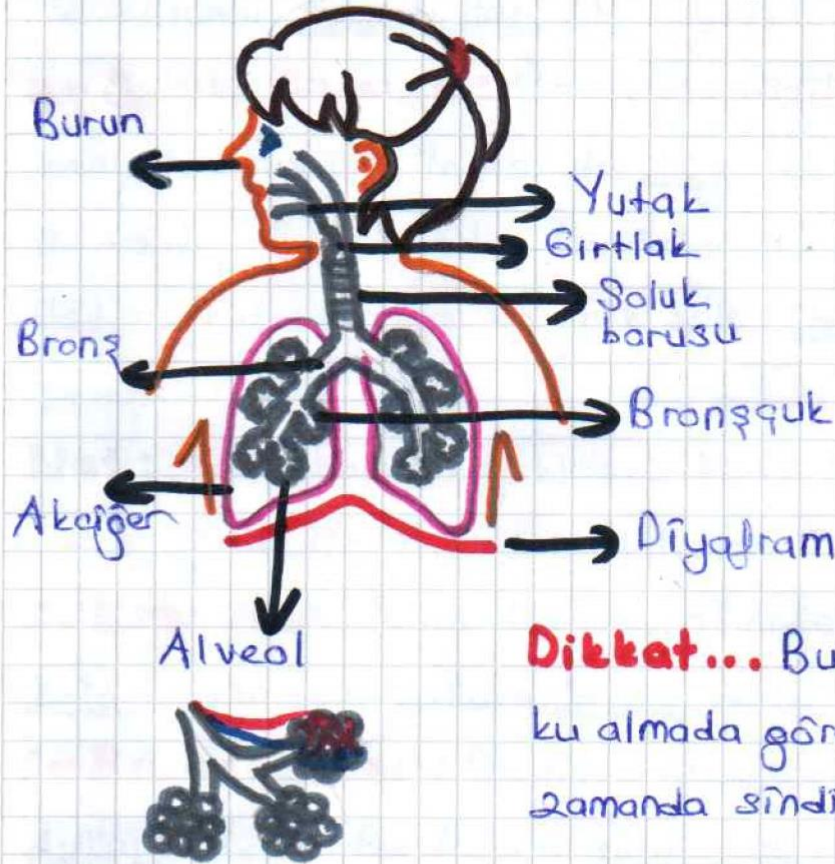 Burun
Yutak
Gırtlak
Soluk
borusu
Bronş
Bronşçuk
Akciğer
Diyafram
Alveol
Dikkat... Bu
ku almada gör
zamanda sindi